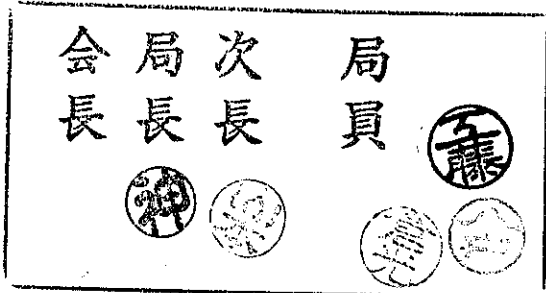 会長
局長
次長
局員
工藤
沖